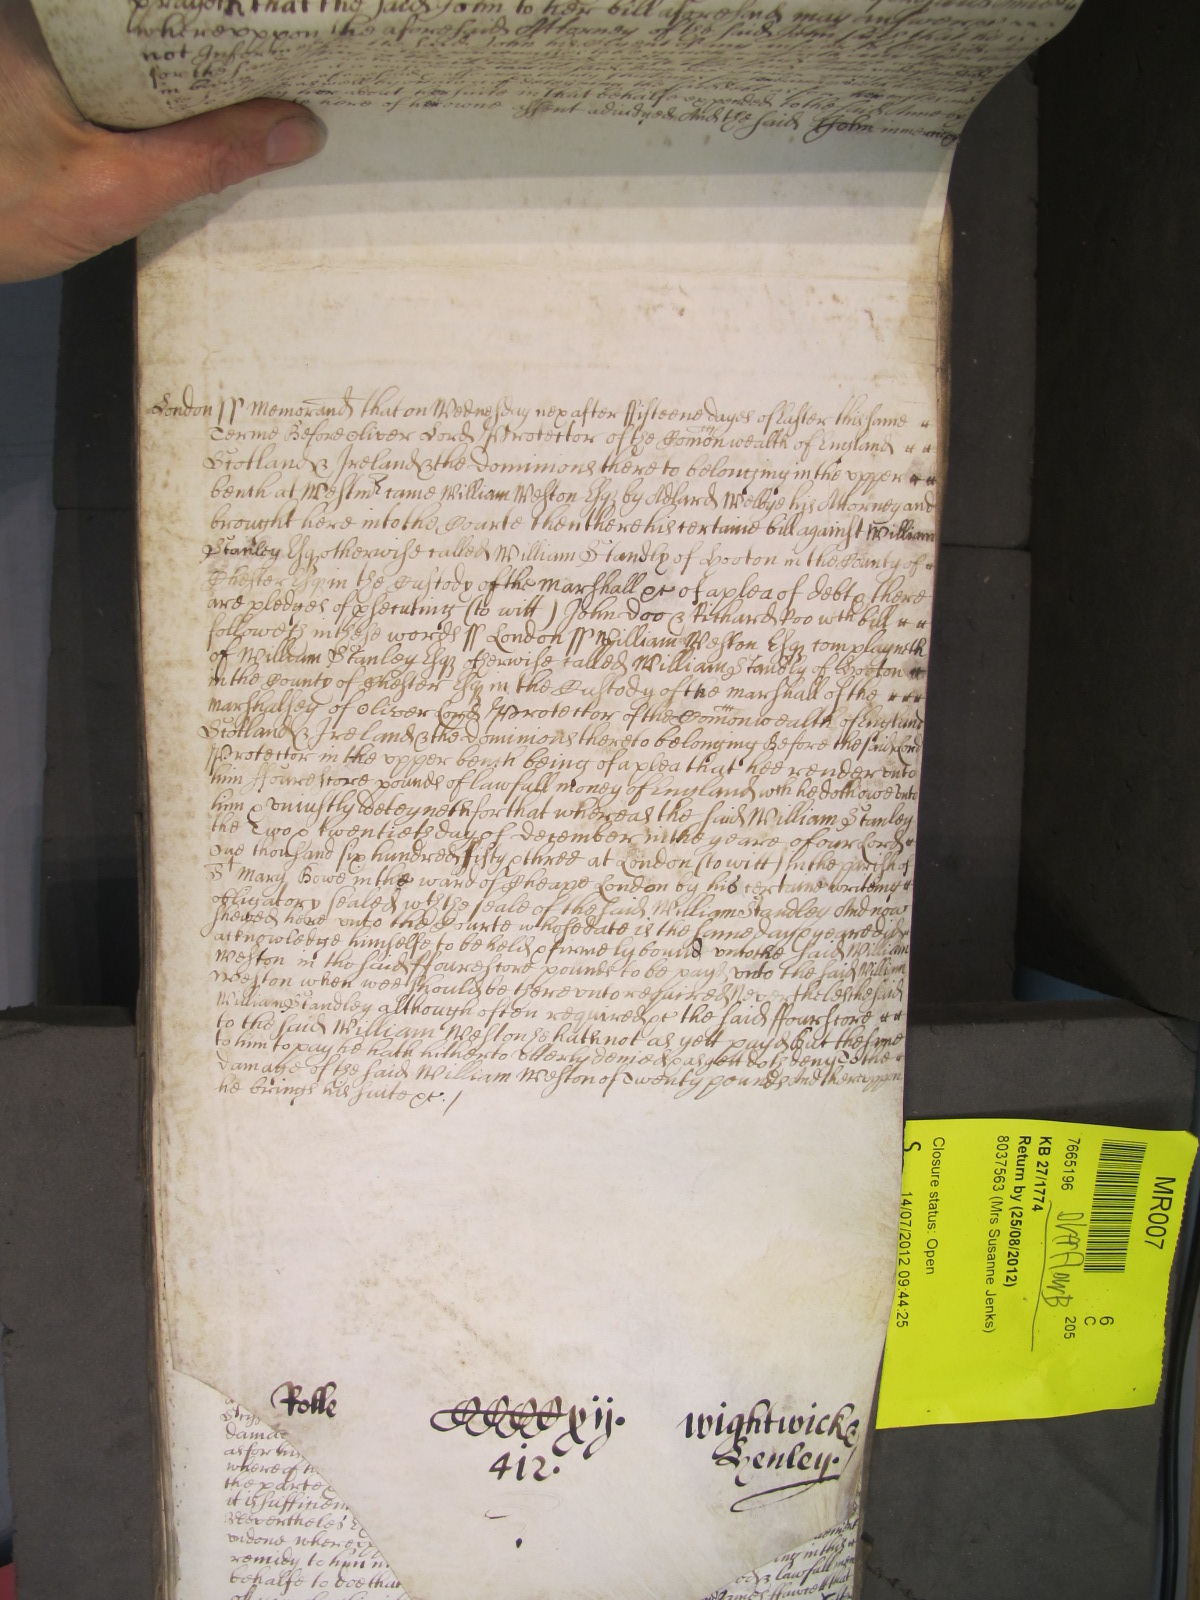 prayeth that the said John to her bill aforesaid may answere
whereuppon the aforesaid Attorney of the said John saith that he is
not Informed
for the
in
her about her suite in that behalfe expended to the said Anne by
here of her owne assent adiudged And the said John in mercy
London ss Memorand that on Wednesday nex after ffifteene dayes of Easter this same
Terme Before Oliver Lord Protector of the Comonwealth of England
Scotland & Ireland & the dominions thereto belonging in the upper
bench at Westmr came William Weston Esqr by Adlard Welbye his Attorney and
brought here into the Courte then there his certaine bill against William
Stanley Esqr otherwise called William Standly of Hooton in the County of
Chester Esqr in the Custody of the Marshall &c of a plea of debt & there
are pledges of psecuting (to witt) John Doo & Richard Roo wch bill
followeth in these words ss London ss William Weston Esqr complayneth
of William Stanley Esqr otherwise called William Standly of Hooton
in the County of Chester Esqr in the Custody of the marshall of the
Marshalsey of Oliver Lord Protector of the Comonwealth of England
Scotland & Ireland & the dominions thereto belonging Before the said Lord
Protector in the upper bench being of a plea that hee render unto
him ffourescore pounds of lawfull money of England wch he doth owe unto
him & uniustly deteyneth for that whereas the said William Stanley
the Two & twentieth day of December in the yeare of our Lord
One thousand six hundred fifty & three at London (to witt) in the parish of
St Mary Bowe in the ward of Cheape London by his certaine writeing
obligatory sealed wth the seale of the said William Standley And now
shewed here unto the Courte whose date is the same day & yeare did
acknowledge himselfe to be held & firmely bound unto the said William
Weston in the said ffourescore pounds to be payd unto the said William
Weston when wee should be thereunto required Neverthelesse the said
William Standley although often required &c the said ffourscore
to the said William Weston he hath not as yett payd But the same
to him to pay he hath hitherto utterly denied & as yett doth deny To the
damage of the said William Weston of Twenty pounds And thereuppon
he brings his suite &c. /
Rolle
CCCCxij.
412.
Wightwicke
Henley.
damage
as for
whereof
the partes
it is sufficien
Neverthelesse
remedy to him
behalfe to doe that
ing in this
lawfull mon
James ffawcett that
MR007
6
C
205
7665196
KB 27/1774
Return by (25/08/2012)
8037563 (Mrs Susanne Jenks)
Closure status: Open
S
14/07/2012 09:44:25